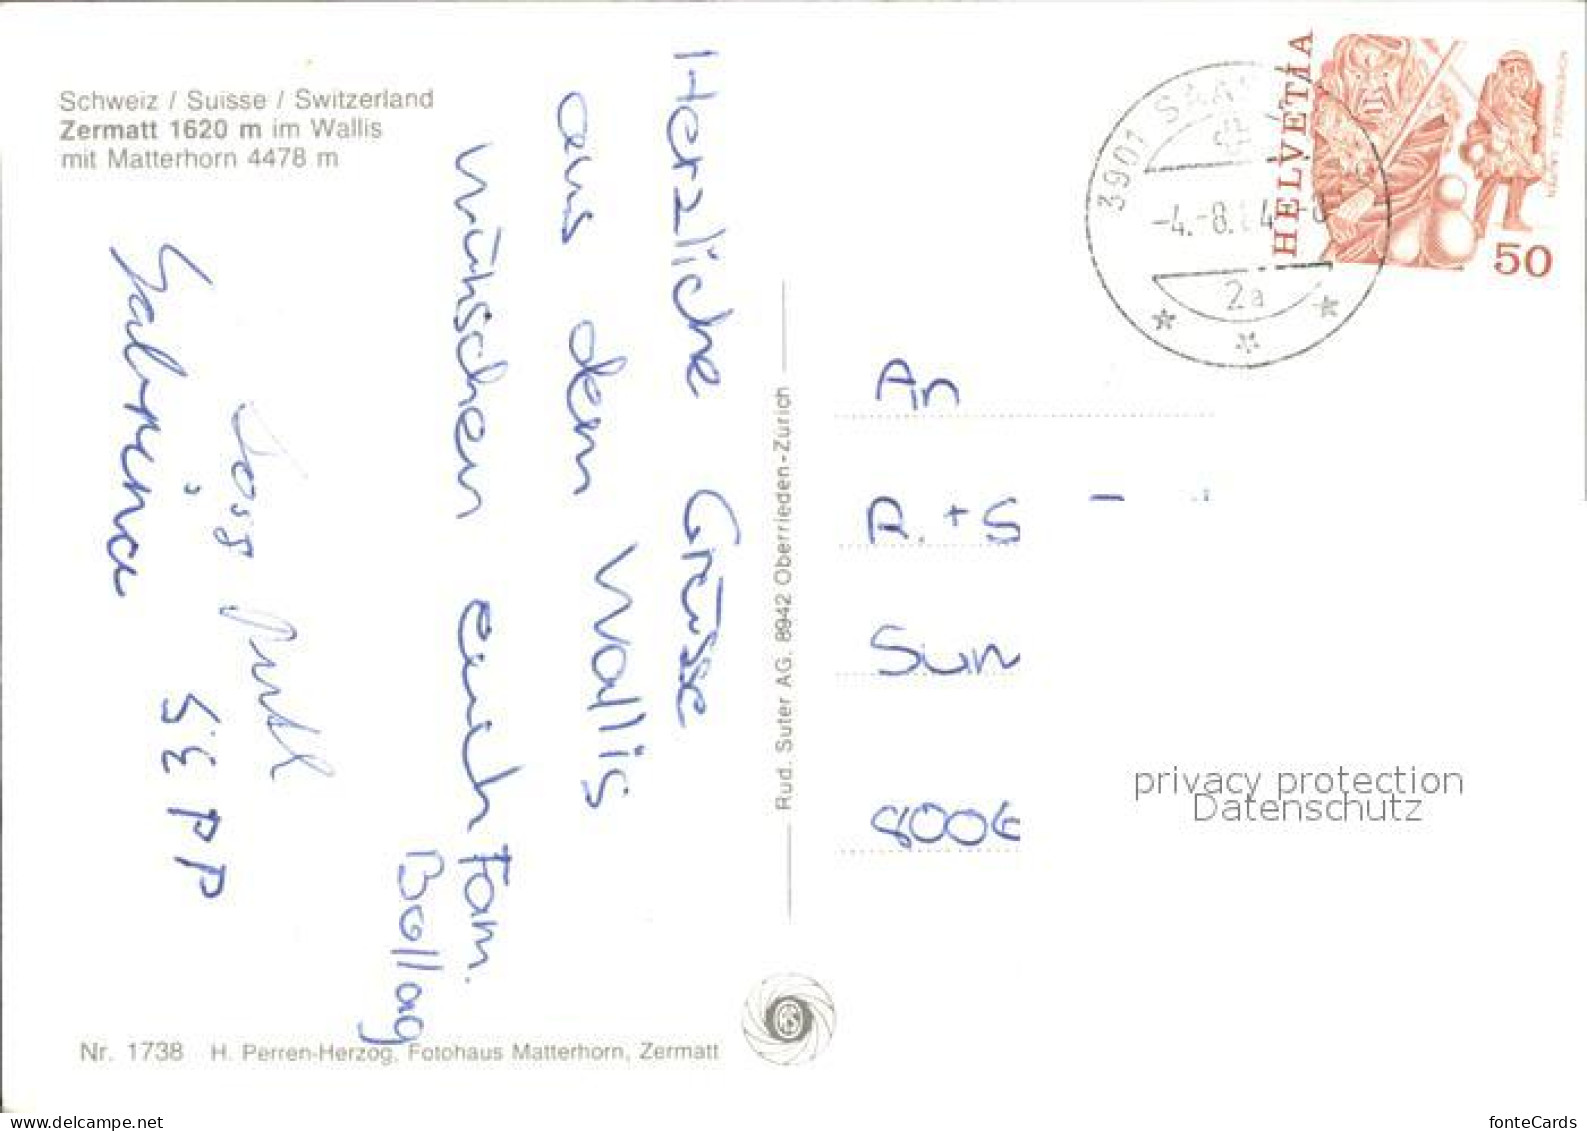 Schweiz / Suisse / Switzerland
Zermatt 1620 m im Wallis
mit Matterhorn 4478 m
Herzliche Grüsse
aus dem Wallis
wünschen euch Fam.
Bollag
SEPP
Sabrina
Nr. 1738 H. Perren-Herzog, Fotohaus Matterhorn, Zermatt
Rud. Suter AG. 8942 Oberrieden-Zürich
HELVETIA
50
3901 SAAS
-4.-8.
2a
An
R. + S
Sun
8006
privacy protection
Datenschutz
www.delcampe.net
fonteCards